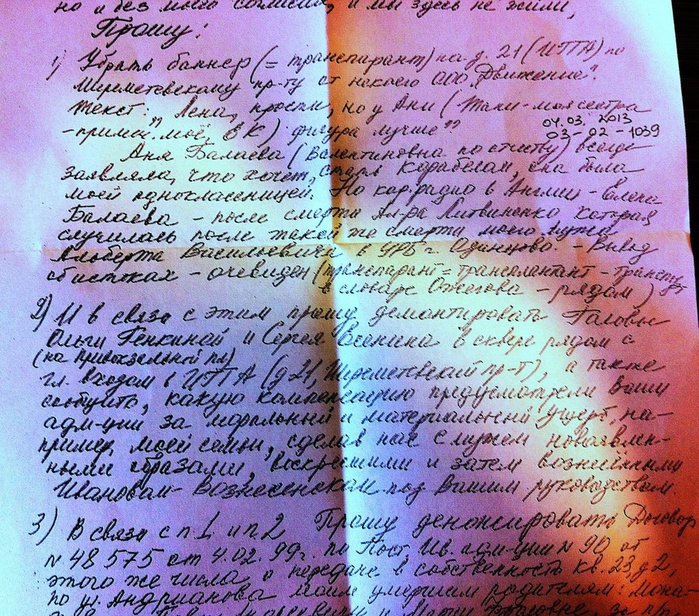 но и без моего согласия, и мы здесь не жили,
Прошу:
1) Убрать баннер (= транспарант) на д. 21 (ИТА) по
Шереметевскому пр-ту от некоего ООО „Движение".
Текст: „Лена, прости, но у Ани (Тани - моя сестра
- примеч. моё, В К) фигура лучше"
04.03. 2013
03-02-1039
Аня Балаева (Валентиновна по отчеству) всегда
заявляла, что хочет стать Карабелам, она была
моей одноклассницей. Но кор. радио в Англии - Елена
Балаева - после смерти Ал-ра Литвиненко которая
случилась после такой же смерти моего мужа
Альберта Васильевича в УРБ г. Одинцово. - Вывод
об истоках - очевиден (транспарант = трансплантант - транс
в словаре Ожегова - рядом)
2) И в связи с этим прошу демонтировать Головы
Ольги Генкиной и Сергея Есенина в сквере рядом с
(на Привокзальной пл)
гл. входом в ИТА (д 21, Шереметевский пр-т), а также
сообщить, какую компенсацию предусмотрели Ваши
адм-ции за моральный и материальный ущерб, на-
пример, моей семьи, сделав нас с мужем новоявлен-
ными образами, воскресшими и затем вознесёнными
Ивановам-Вознесенскам под Вашим руководством
3) В связи с п. 1 и п 2 Прошу денонсировать Договор
N 48575 от 4.02. 99г. по Пост. Ив. адм-ции N 90 от
этого же числа о передаче в собственность кв. 23 д 2,
по ул. Андрианова моим умершим родителям: